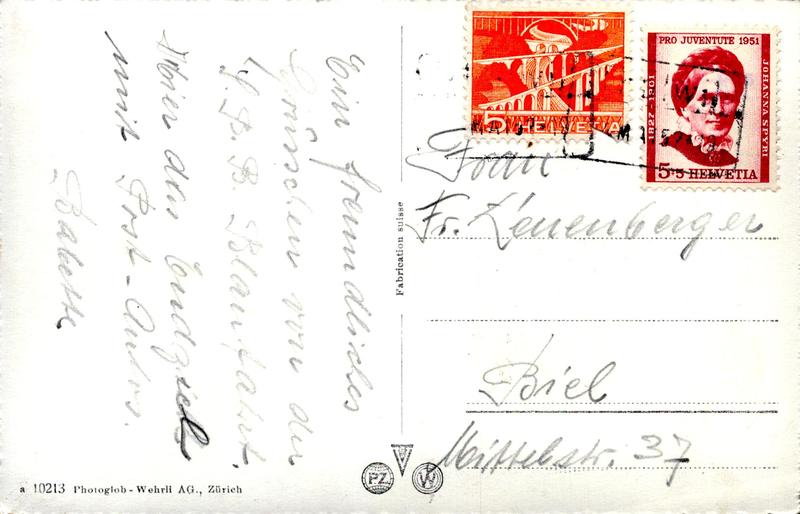 Ein freundliches
Grüsschen von der
S.B.B. Blaufahrt.
Hier das Endziel
mit Post-Autos.
Babette
5 HELVETIA
PRO JUVENTUTE 1951
JOHANNA SPYRI
1827-1901
5+5 HELVETIA
Frau
Fr. Leuenberger
Biel
Mittelstr. 37
Fabrication suisse
PZ
W
a 10213 Photoglob-Wehrli AG., Zürich